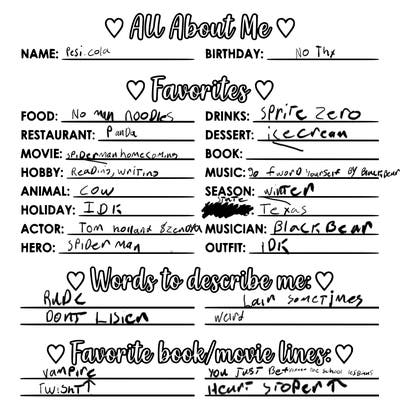 ♡ All About Me ♡
NAME: Pesi.cola BIRTHDAY: No Thx
♡ Favorites ♡
FOOD: No man noodles DRINKS: SPRITE Zero
RESTAURANT: Panda DESSERT: icecream
MOVIE: spiderman homecoming BOOK:
HOBBY: Reading, writing MUSIC: Go f word yourself By
ANIMAL: cow SEASON: winter
HOLIDAY: IDK State Texas
ACTOR: Tom holland MUSICIAN: BlackBear
HERO: SPiDer man OUTFIT: IDK
♡ Words to describe me: ♡
RUDE Lair sometimes
DONT LISIEN weird
♡ Favorite book/movie lines: ♡
vampire You Just Be the school lesbians
TWISHT↑ Heart stoper↑